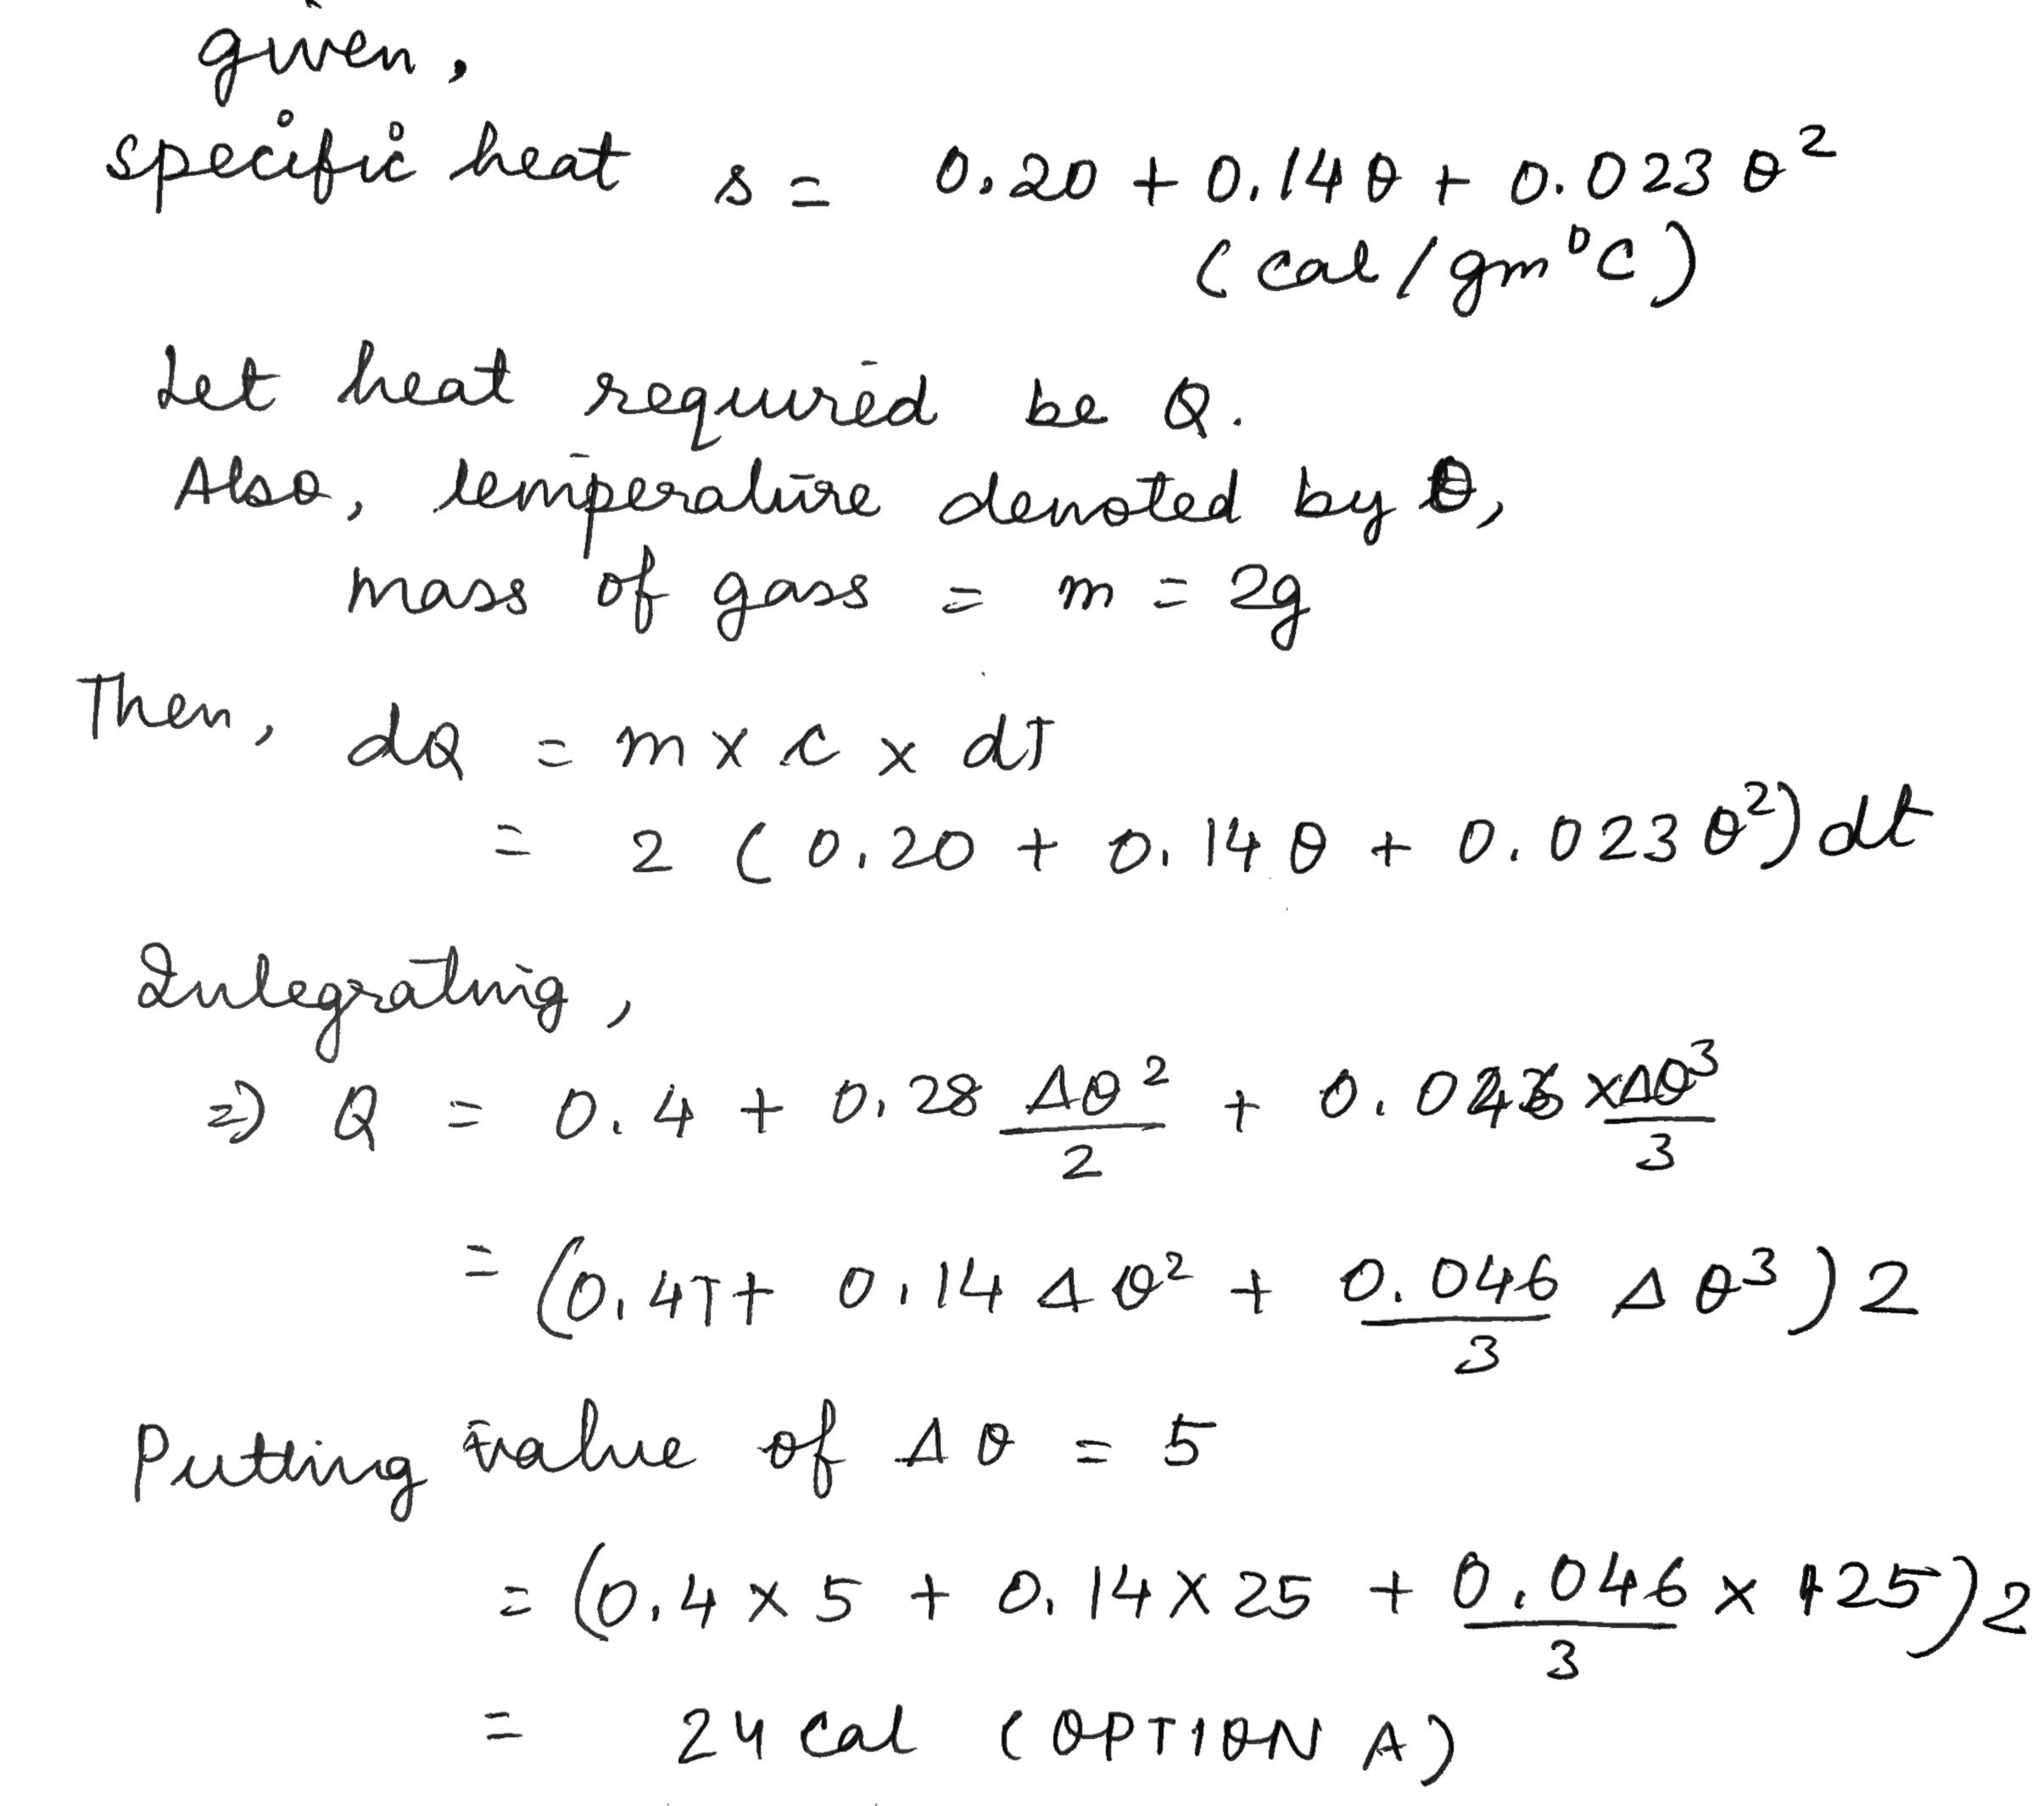 given,
specific heat s = 0.20 + 0.14θ + 0.023θ²
(cal/gm°C)
Let heat required be Q.
Also, temperature denoted by θ,
mass of gass = m = 2g
Then, dQ = m x c x dT
= 2 (0.20 + 0.14θ + 0.023θ²) dt
Integrating,
⇒ Q = 0.4 + 0.28 Δθ²/2 + 0.046 xΔθ³/3
= (0.4T + 0.14 Δθ² + 0.046/3 Δθ³) 2
Putting value of Δθ = 5
= (0.4 x 5 + 0.14 x 25 + 0.046/3 x 125) 2
= 24 cal (OPTION A)